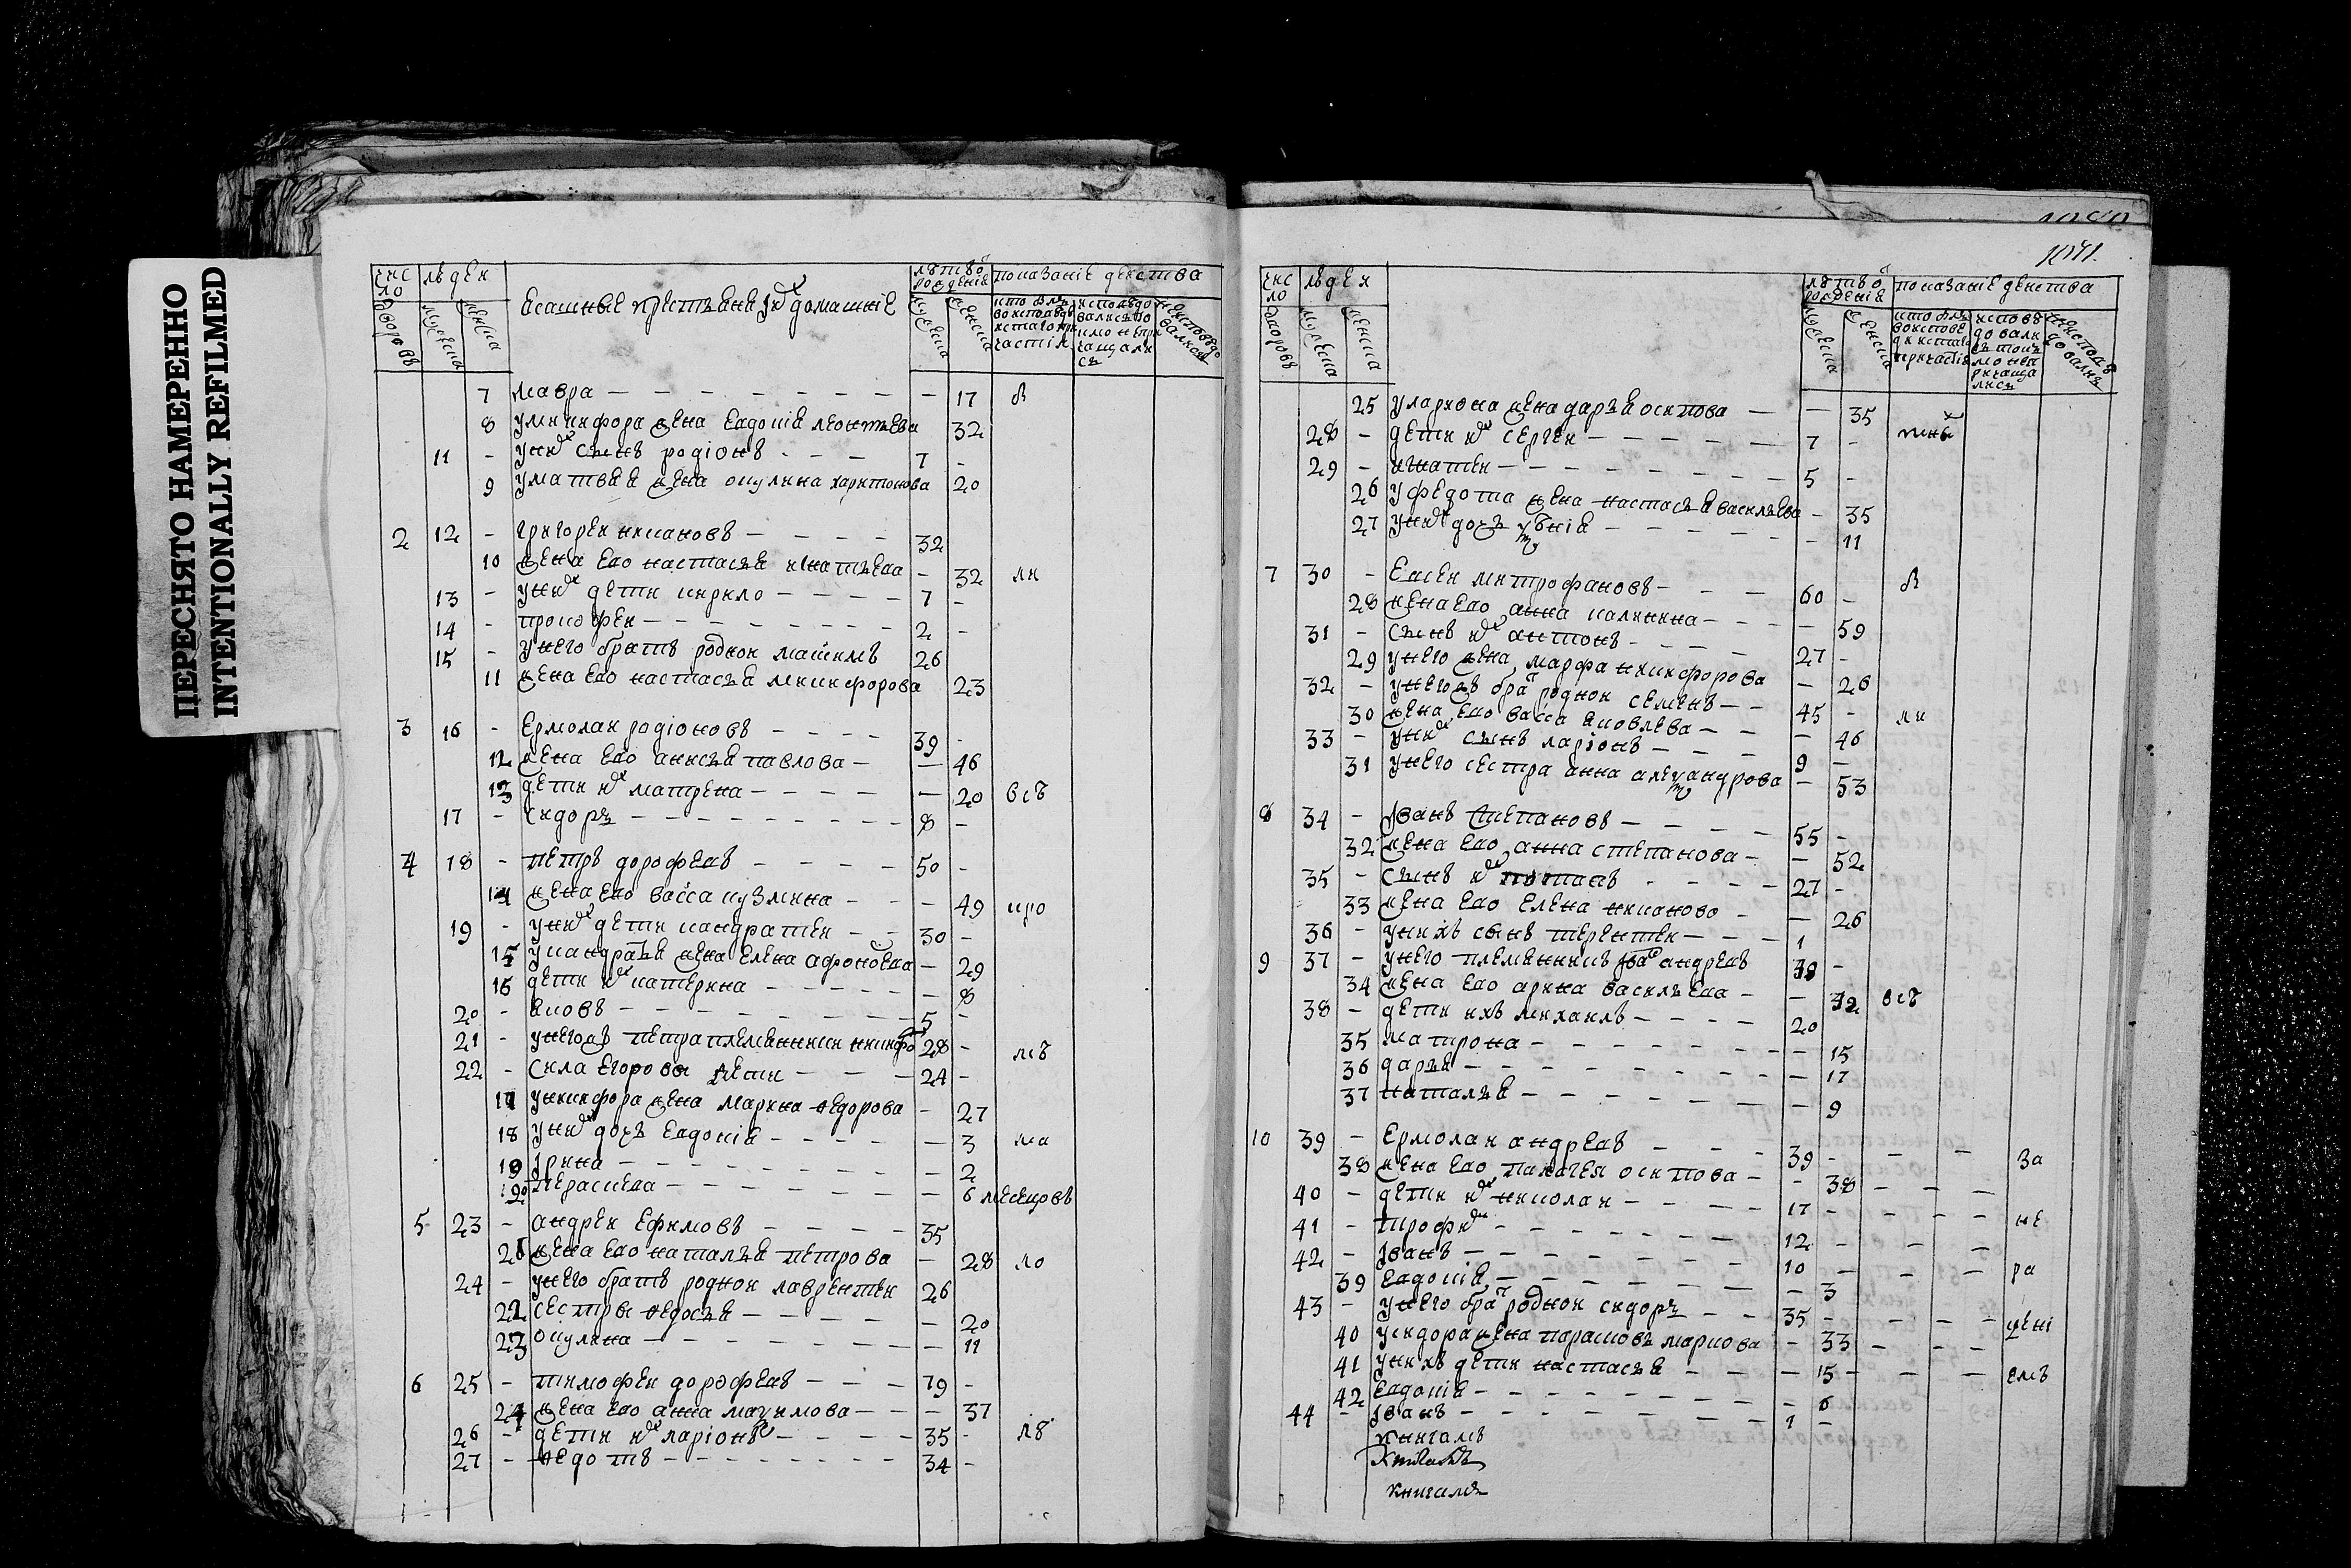 ПЕРЕСНЯТО НАМЕРЕННО
INTENTIONALLY REFILMED
1041.
число людей
ясашные крестьяне и их домашние
лета от рождения показание действа
дворовъ мужеска женска мужеска женска
7 мавра — 17 в
8 у никифора жена евдокия леонтьева 32
11 - у них сынъ родіонъ 7 -
9 у матвея жена окулина харитонова 20
2 12 - григорей никановъ — 32
10 жена ево настасья игнатьева - 32 ли
13 - у них дети кирило — 7 -
14 - прокофеи — 2 -
15 - у него братъ родной максимъ 26
11 жена ево настасья никифорова 23
3 16 - ермолай родіоновъ — 39 -
12 жена ево анисья павлова — 46
13 дети их матрена — 20 всѣ
17 - сидоръ — 8 -
4 18 - петръ дорофеевъ — 50 -
14 жена ево васса кузмина — 49 кро
19 - у них дети кандратей — 30 -
15 у кандратья жена елена афонасьева — 29
16 дети их катерина — 8
20 - яковъ — 5 -
21 - у него ж петра племянники никифоръ 28 - мѣ
22 - сила егоровы дети — 24 -
17 у никифора жена марина федорова - 27
18 у них дочь евдокия — 3 ма
19 ірина — 2
20 перасиева — 6 месецовъ
5 23 - андрей ефимовъ — 35
21 жена ево наталья петрова — 28 ло
24 - у него братъ родной лаврентей 26
22 сестры федосья — 20
23 окулина — 11
6 25 - тимофей дорофеевъ — 79 -
24 жена ево анна максимова — 37
26 - дети их ларіонъ — 35 - лѣ
27 - федотъ — 34 -
число людей лета от рождения показание действа
дворовъ мужеска женска мужеска женска
25 у лариона жена дарья осипова — 35
28 - дети их сергей — 7 -
29 - игнатей — 5 -
26 у федота жена настасья васильева - 35
27 у них дочь — 11
7 30 - евсей митрофановъ — 60 - в
28 жена ево анна калинина — 59
31 - сынъ их антонъ — 27 -
29 у него жена марфа никифорова — 26
32 - у него ж братъ родной семенъ — 45 - ли
30 жена ево васса яковлева — 46
33 - у них сынъ ларіонъ — 9 —
31 у него сестра анна александрова — 53
8 34 - іванъ степановъ — 55 -
32 жена ево анна степанова — 52
35 - сынъ их потапъ — 27 -
33 жена ево елена никаново — 26
36 - у нихъ сынъ терентей — 1
9 37 - у него племянникъ андреевъ 38 -
34 жена ево арина васильева — 32 всѣ
38 - дети ихъ михаилъ — 20
35 матрона — 15
36 дарья — 17
37 наталья — 9
10 39 - ермолай андреевъ — 39 - за
38 жена ево пелагея осипова — 38
40 - дети их николай — 17 - не
41 - трофимъ — 12 -
42 - іванъ — 10 - ра
39 евдокия — 3
43 - у него братъ родной сидоръ — 35 -
40 у сидора жена парасковья маркова - 33 дені
41 у нихъ дети настасья — 15 емъ
42 евдокия — 6
44 - іванъ — 1 -